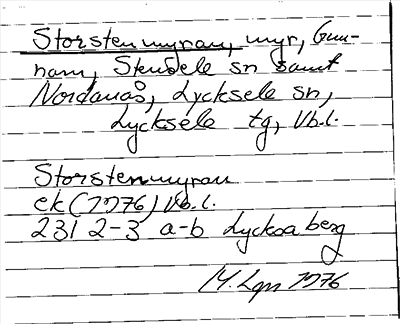 Storstenmyran, myr, Gun-
narn, Stensele sn samt
Nordanås, Lycksele sn,
Lycksele tg, Vb.l.
Storstenmyran
ek (1976) Vb.l.
231 2-3 a-b Lycksaberg
1976